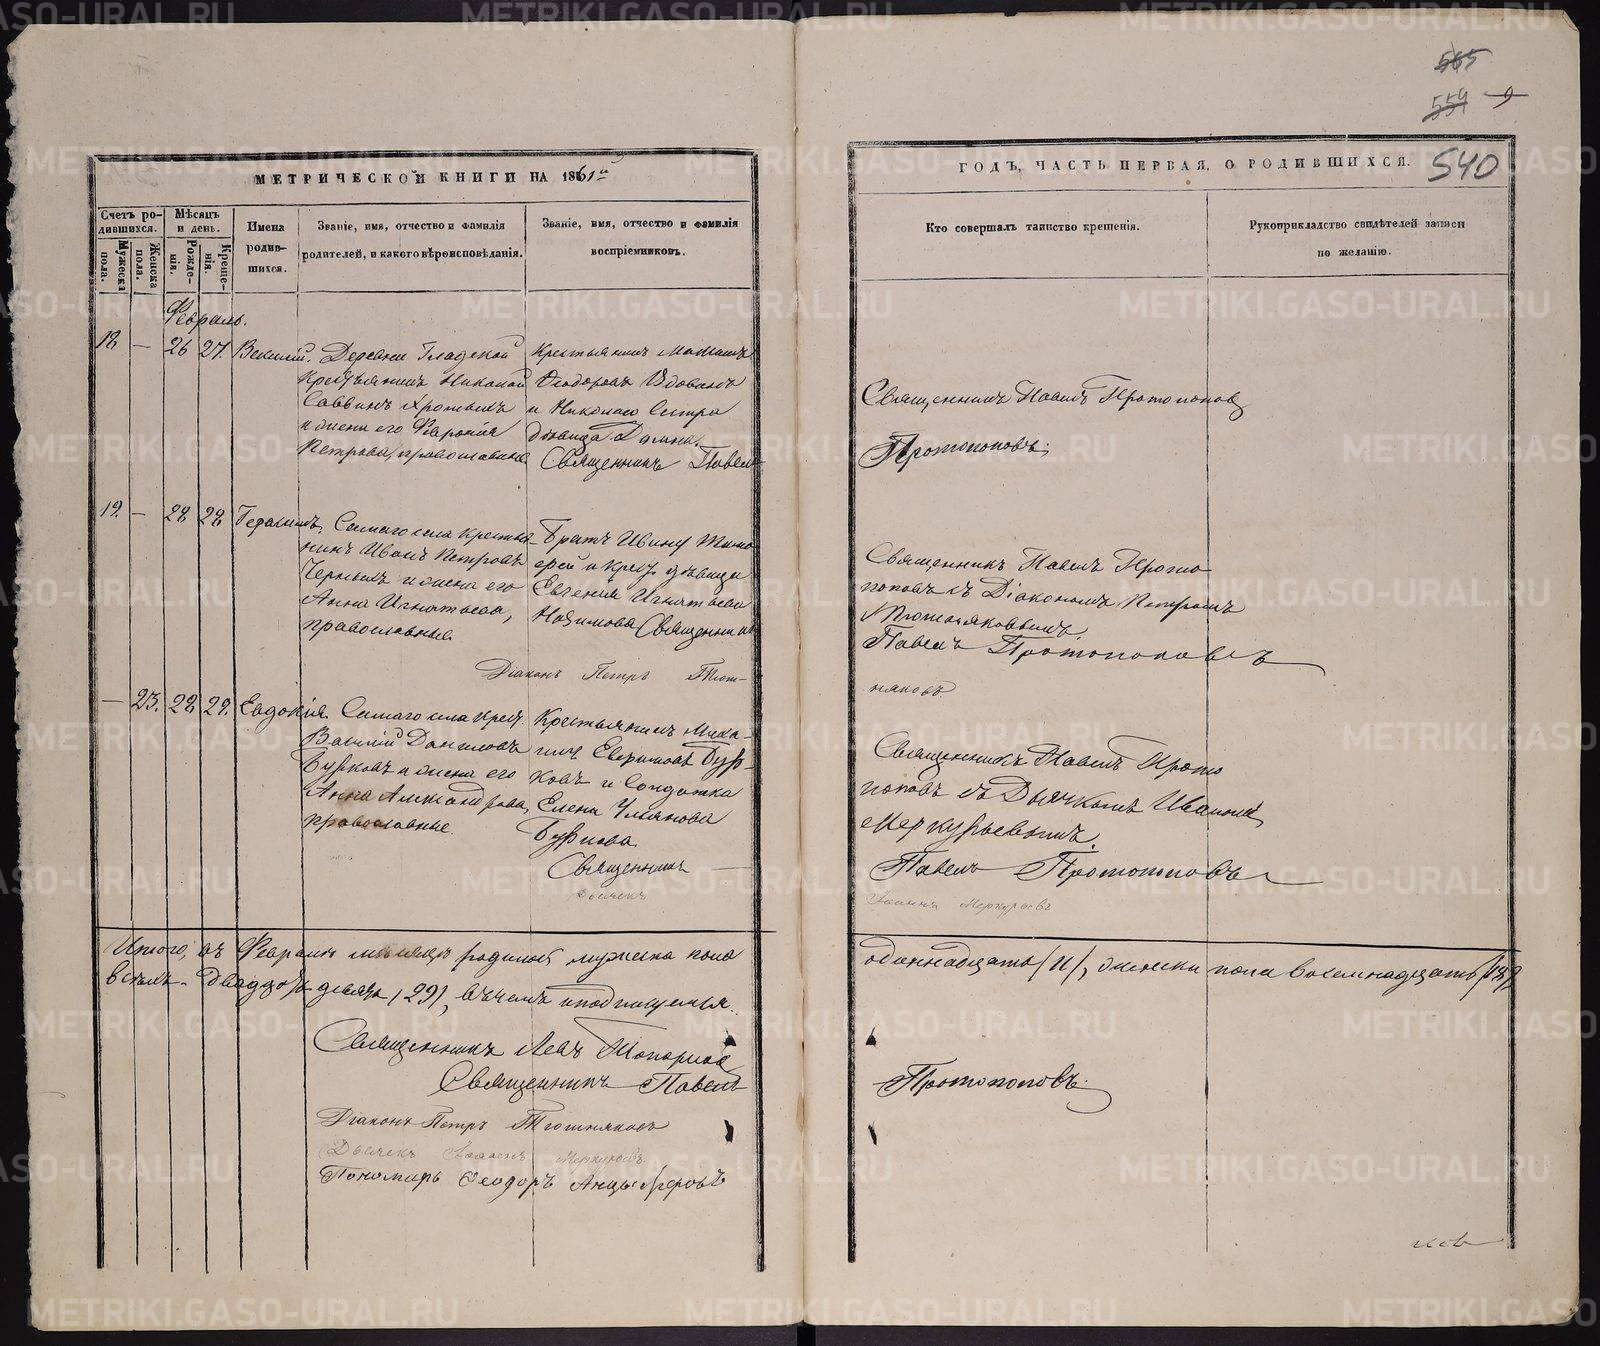 565
554 9
МЕТРИЧЕСКОЙ КНИГИ НА 1861й
ГОДЪ, ЧАСТЬ ПЕРВАЯ, О РОДИВШИХСЯ.
540
Счетъ ро-
дившихся.
Мужеска пола.
Женска пола.
Мѣсяцъ
и день.
Рожде-
нія.
Креще-
нія.
Имена
родив-
шихся.
Званіе, имя, отчество и фамилія
родителей, и какого вѣроисповѣданія.
Званіе, имя, отчество и фамилія
воспріемниковъ.
Кто совершалъ таинство крещенія.
Рукоприкладство свидѣтелей записи
по желанію.
Февраль.
18 — 26 27. Василій.
Деревни Гладской
Крестьянинъ Николай
Саввинъ
и жена его Феврония
Петрова, православные
Крестьянинъ
Феодоровъ Вдовинъ
и Николаю Сестра
дѣвица Домна.
Священникъ Павелъ
Священникъ Павелъ Протопоповъ
Протопоповъ.
19. — 28 28 Герасимъ.
Самаго села Крестья-
нинъ Иванъ Петровъ
Черныхъ и жена его
Анна Игнатьева,
православные.
Братъ Ивану Тимо-
фей и Крест. дѣвица
Евгенія Игнатьева
Священникъ
Священникъ Павелъ Прото
поповъ съ Діакономъ Петромъ
Тюшняковымъ.
Павелъ Протопоповъ
Діаконъ Петръ Тюш-
няковъ
— 23. 28 29. Евдокія.
Самаго села Крест.
Василій Даниловъ
Бурковъ и жена его
Анна Александрова,
православные.
Крестьянинъ Миха-
илъ Бур-
ковъ и Солдатка
Елена Ульянова
Буркова.
Священникъ
Дьячекъ
Священникъ Павелъ Прото
поповъ съ Дьячкомъ Иваномъ
Меркурьевымъ.
Павелъ Протопоповъ
Іоаннъ Меркурьевъ
Итого, въ Февралѣ мѣсяцѣ родилось мужеска пола
одиннадцать /11/, женска пола восемнадцать /18/
всѣхъ – двадцать девять /29/, въ чемъ и подпишемся.
Священникъ Левъ Топорковъ
Священникъ Павелъ
Протопоповъ.
Діаконъ Петръ Тюшняковъ
Дьячекъ Іоаннъ Меркурьевъ
Пономарь Феодоръ Анцыферовъ
METRIKI.GASO-URAL.RU